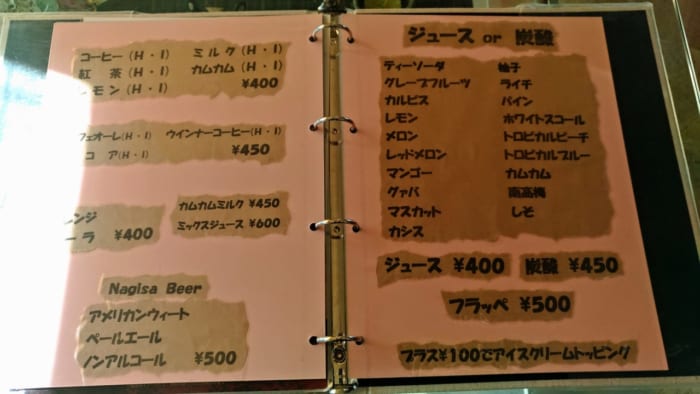 コーヒー(H・I) ミルク(H・I)
紅 茶(H・I) カムカム(H・I)
モン(H・I) ¥400
フェオーレ(H・I) ウインナーコーヒー(H・I)
コ ア(H・I) ¥450
カムカムミルク ¥450
ミックスジュース ¥600
ンジ
ーラ ¥400
Nagisa Beer
アメリカンウィート
ペールエール
ノンアルコール ¥500
ジュース or 炭酸
ティーソーダ 柚子
グレープフルーツ ライチ
カルピス パイン
レモン ホワイトスコール
メロン トロピカルピーチ
レッドメロン トロピカルブルー
マンゴー カムカム
グァバ 南高梅
マスカット しそ
カシス
ジュース ¥400 炭酸 ¥450
フラッペ ¥500
プラス¥100でアイスクリームトッピング